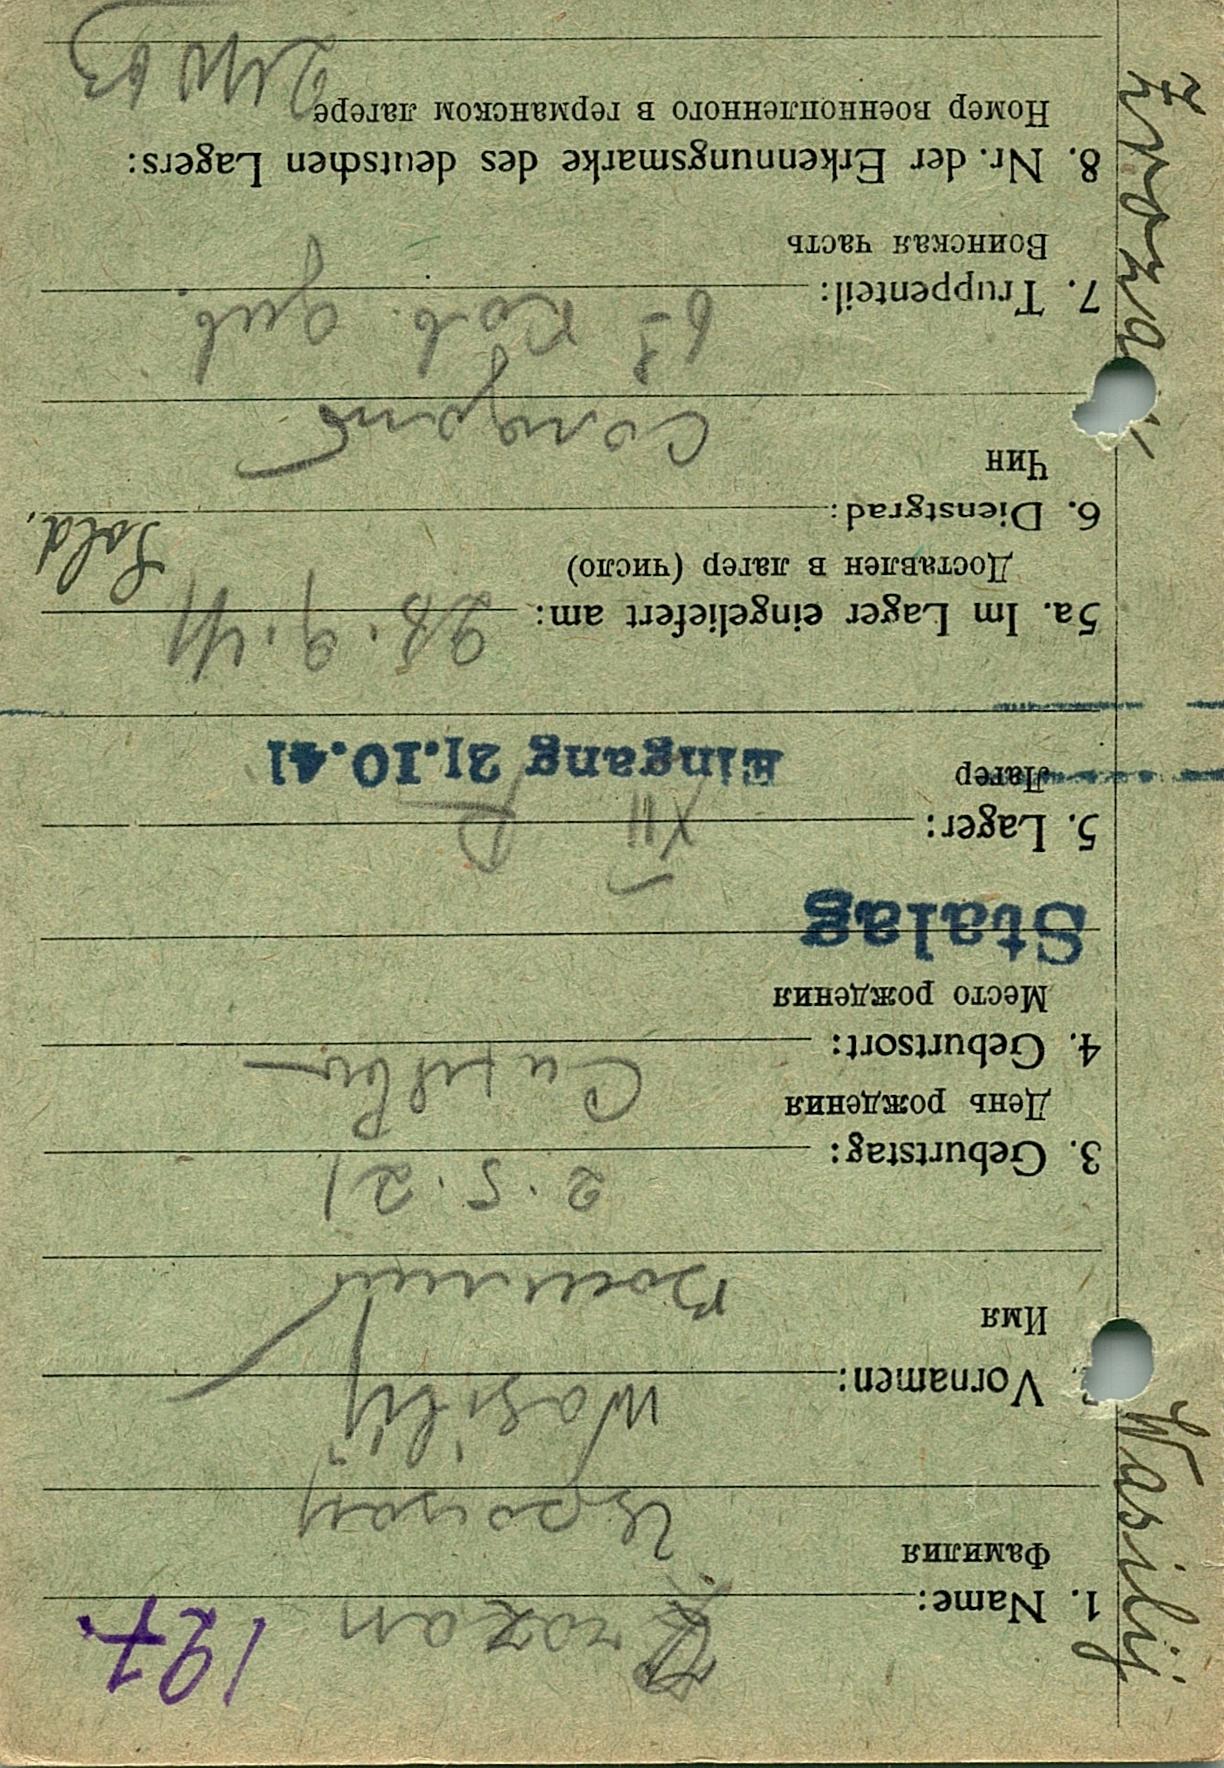 127.
1. Name:
Фамилия
Vornamen: Wasilij
Имя Василий
3. Geburtstag: 2.5.21
День рождения
4. Geburtsort:
Место рождения
Stalag
5. Lager: XII D
Лагер Eingang 21.10.41
5a. Im Lager eingeliefert am: 28.9.41
Доставлен в лагер (число)
6. Dienstgrad: Sold.
Чин солдат
7. Truppenteil: 6-я кав. див.
Воинская часть
8. Nr. der Erkennungsmarke des deutschen Lagers:
Номер военнопленного в германском лагере
Wasilij